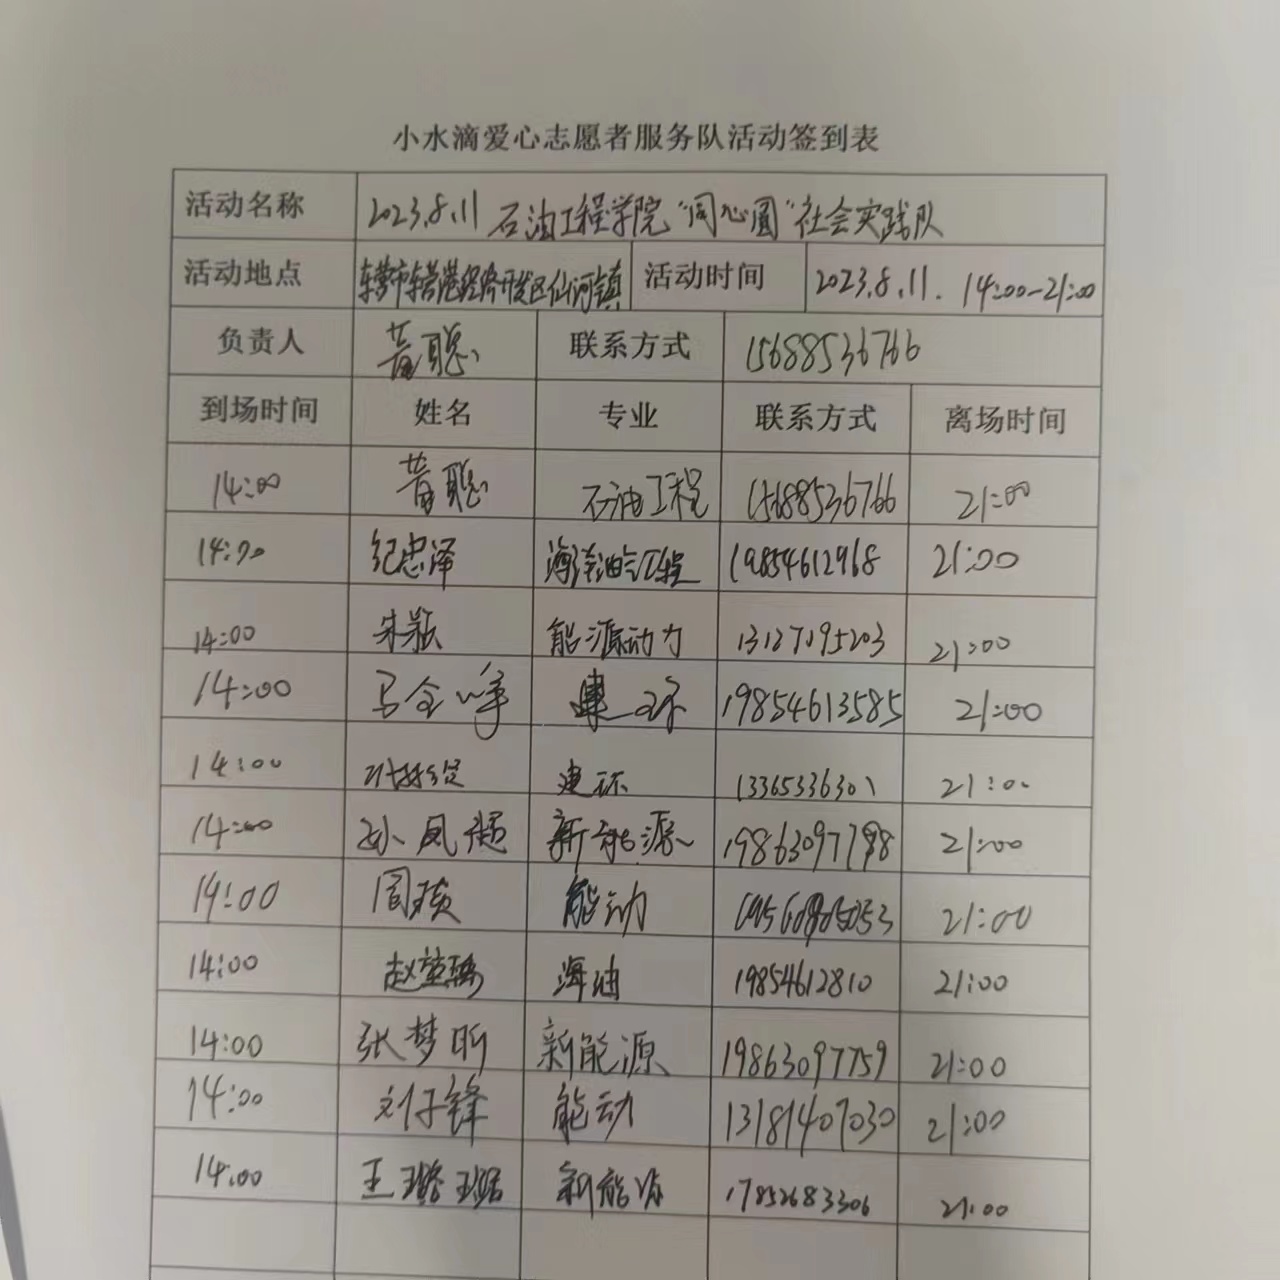 小水滴爱心志愿者服务队活动签到表
活动名称 2023.8.11 石油工程学院“同心圆”社会实践队
活动地点 东营市东营港经济开发区仙河镇 活动时间 2023.8.11. 14:00-21:00
负责人 黄聪 联系方式 15688536766
到场时间 姓名 专业 联系方式 离场时间
14:00 黄聪 石油工程 15688536766 21:00
14:00 纪忠泽 海洋油气工程 19854612968 21:00
14:00 宋颖 能源动力 13127195203 21:00
14:00 马全峰 建环 19854613585 21:00
14:00 建环 13365336301 21:00
14:00 孙凤超 新能源 19863097798 21:00
14:00 能动 21:00
14:00 海油 19854612810 21:00
14:00 张梦昕 新能源 19863097759 21:00
14:00 刘子锋 能动 13181407030 21:00
14:00 王璐瑶 新能源 17852683306 21:00